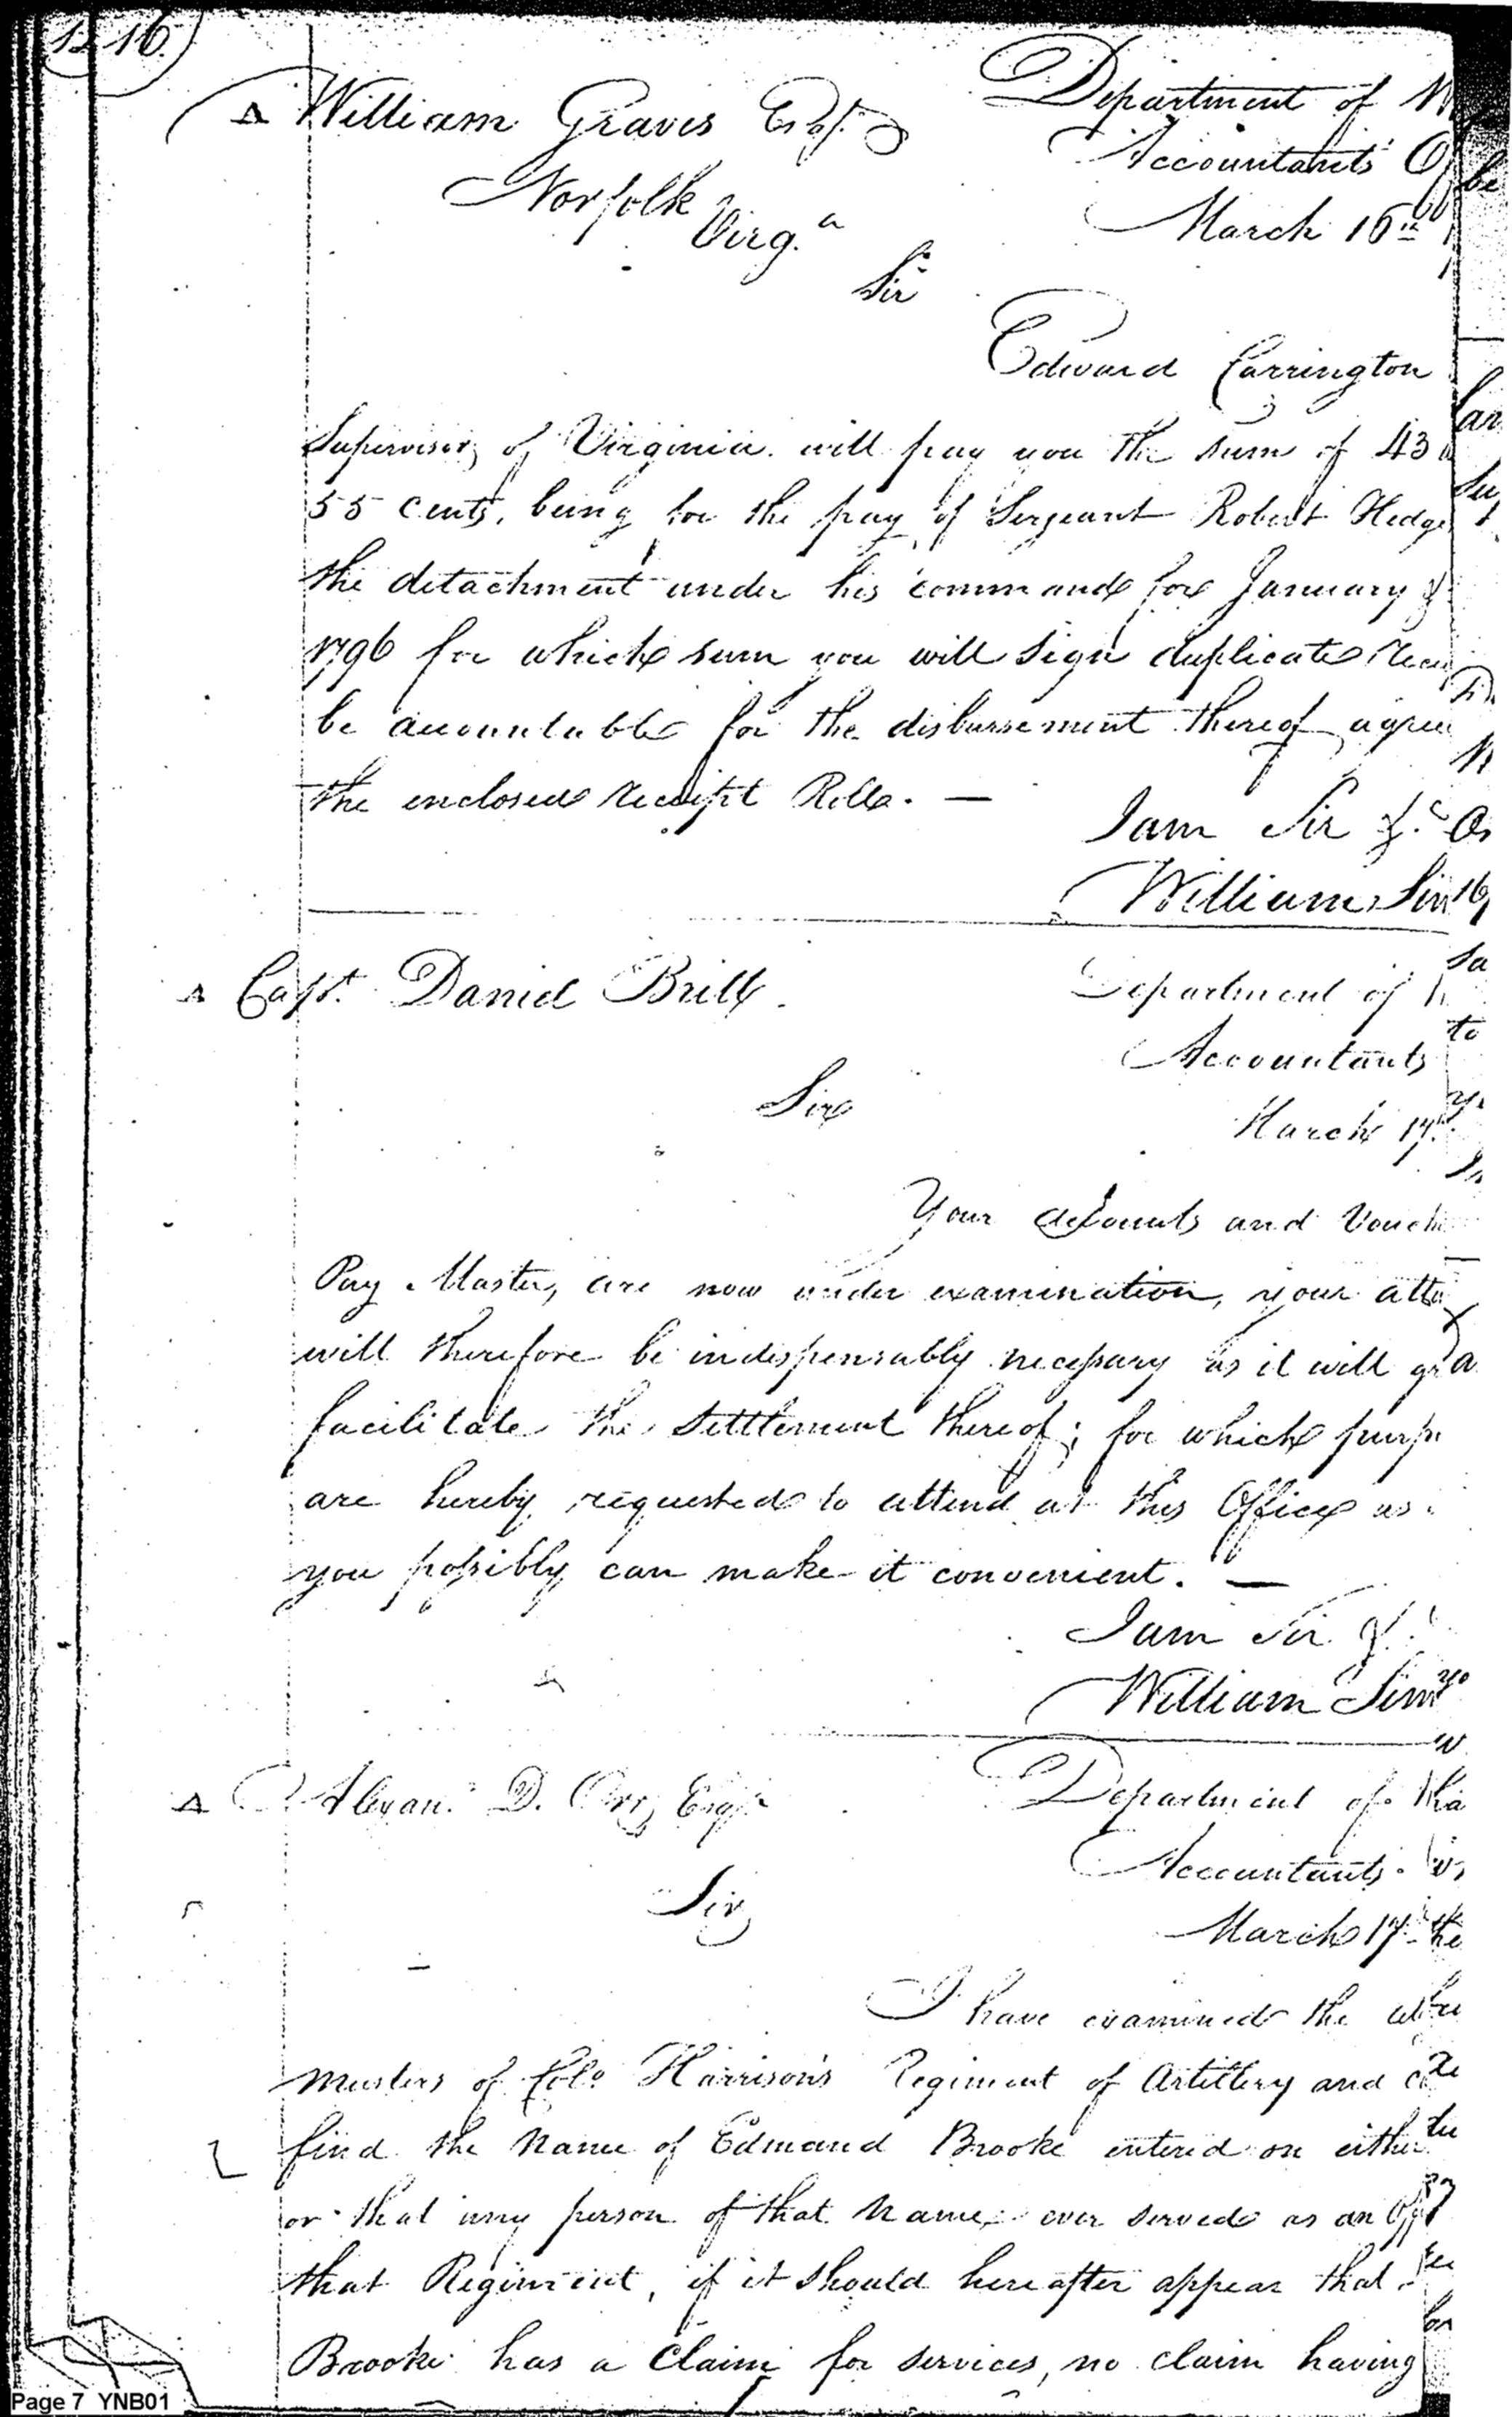 16
William Graves Esqr.
Department of
Norfolk
Accountants
Virg.a
March 16th
Sir
Edward Carrington
Supervisor, of Virginia will pay you the sum of 43
55 Cents, being for the pay of Sergeant Robert Hedge
the detachment under his command for January &
1796 for which sum you will sign duplicate
be accountable for the disbursement thereof agree
the enclosed receipt Roll. —
I am Sir &c.
William Sim
Capt. Daniel Britt
Department of
Accountants
Sir
March 17th
Your accounts and Vouch
Pay Master, are now under examination, your atte
will therefore be indispensably necessary as it will
facilitate the settlement thereof; for which purp
are hereby requested to attend at this Office as
you possibly can make it convenient. —
I am Sir &c
William Sim
Alexan. D. Orr, Esqr
Department of
Accountants
Sir
March 17th
I have examined the
musters of Colo. Harrison's Regiment of Artillery and
find the Name of Edmund Brooke entered on either
or that any person of that Name, ever served as an Off
that Regiment, if it should hereafter appear that
Brooke has a Claim for services, no claim having
Page 7 YNB01